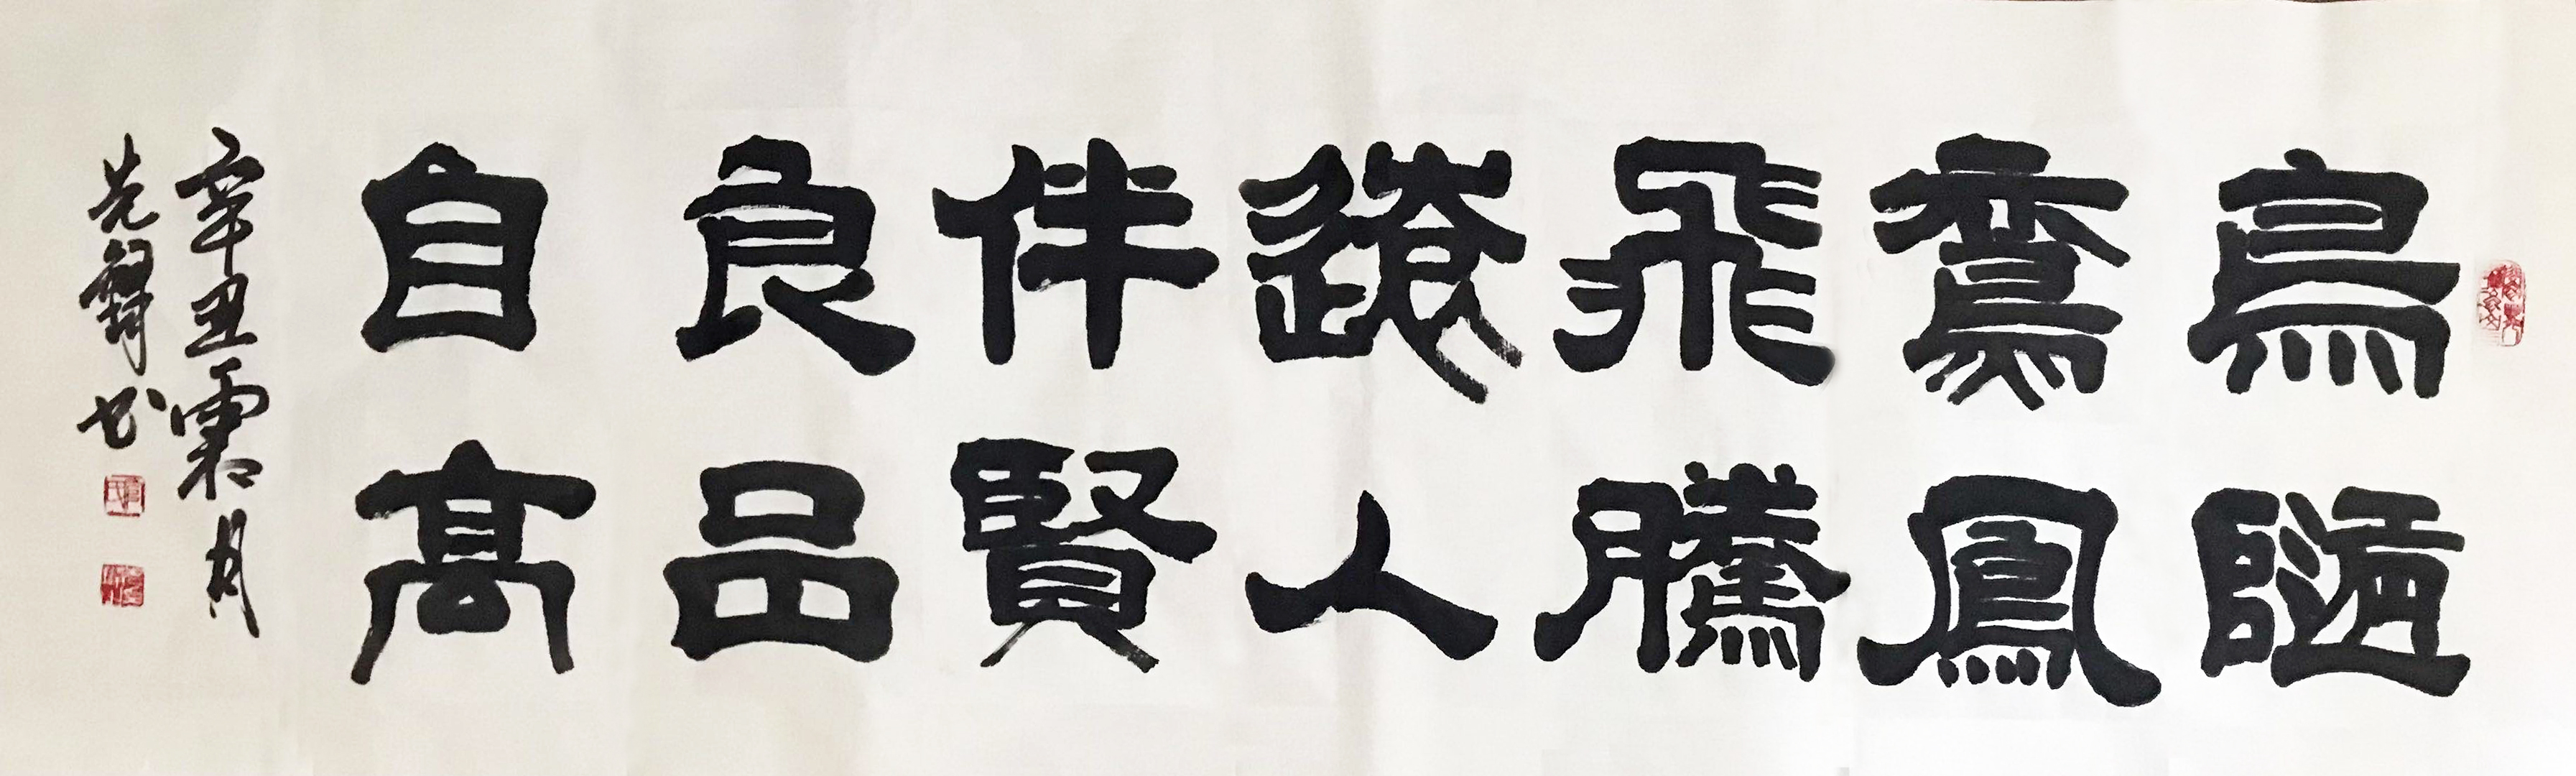 鳥隨
鸞鳳
飛騰
遠人
伴賢
良品
自高
辛丑霜月
先鋒书